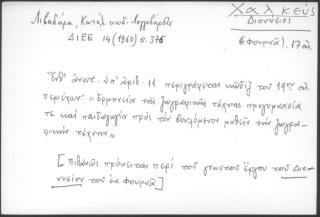 Λιβαδάρα, Κατάλ. κωδ. Λογγοβάρδας
ΔΙΕΕ 14 (1960) σ. 376
Χαλκεύς
Διονύσιος
(εκ Φουρνᾶ). 17 αἰ.
Ὑπ' ἀριθ. 11 περιγράφεται κῶδιξ τοῦ 19ου αἰ.
περιέχων: «Ἑρμηνεία τῆς ζωγραφικῆς τέχνης προγυμνασία
τε καὶ παιδαγωγία πρὸς τὸν βουλόμενον μαθεῖν τὴν ζωγρα-
φικὴν τέχνην»
[πιθανῶς πρόκειται περὶ τοῦ γνωστοῦ ἔργου τοῦ Διο-
νυσίου τοῦ ἐκ Φουρνᾶ]